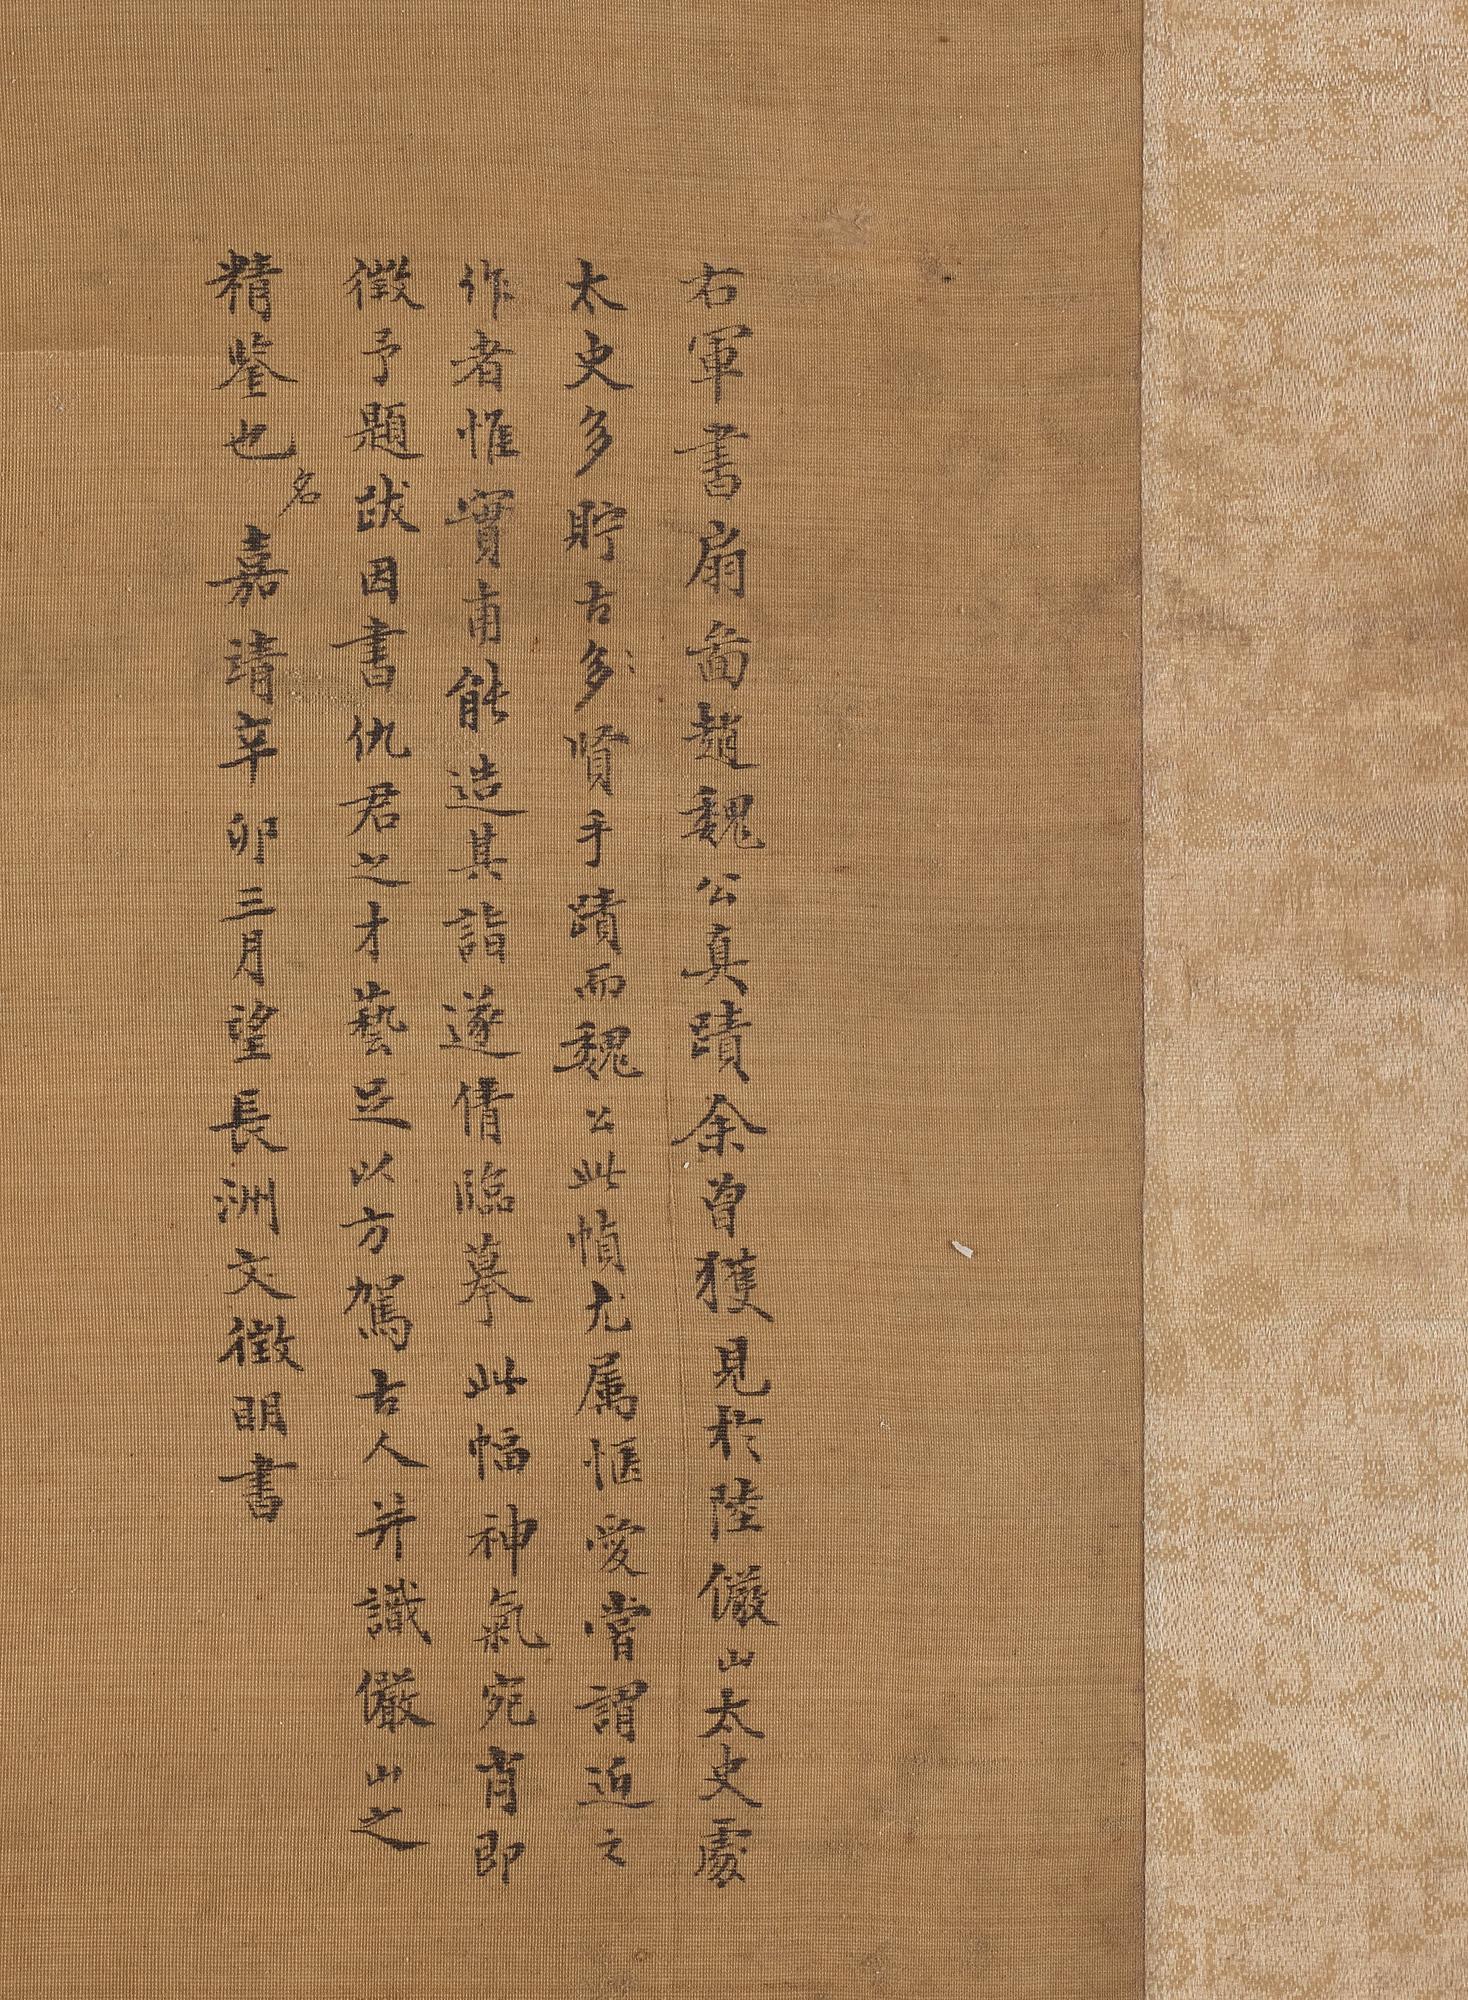 右軍書扇啚趙魏公真蹟余曾獲見於陸儼山太史處
太史多貯古多〻賢手蹟而魏公此幀尤属惬愛嘗謂近之
作者惟實甫能造其詣遂倩臨摹此幅神氣宛肖即
徵予題跋因書仇君之才藝足以方駕古人并識儼山之
精鉴也 嘉靖辛卯三月望長洲文徵明書
名